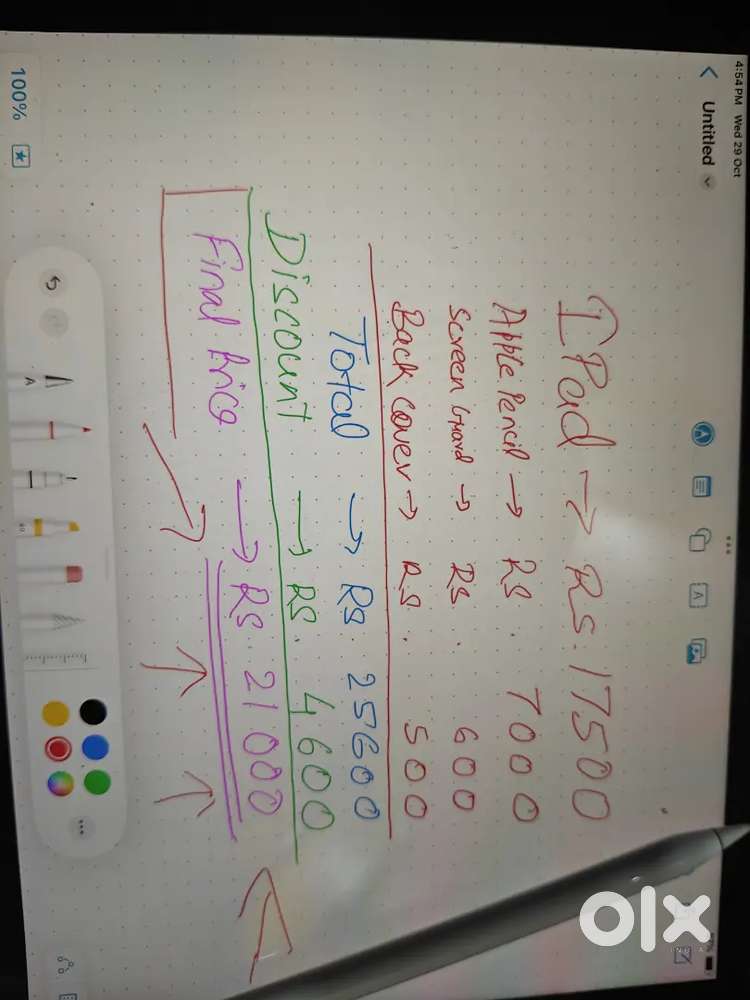 4:54 PM Wed 29 Oct
Untitled
A
IPad → Rs. 17500
Apple Pencil → Rs 7000
Screen Guard → Rs. 600
Back cover → Rs. 500
Total → Rs. 25600
Discount → Rs. 4600
Final Price → Rs. 21000
A
100%
olx